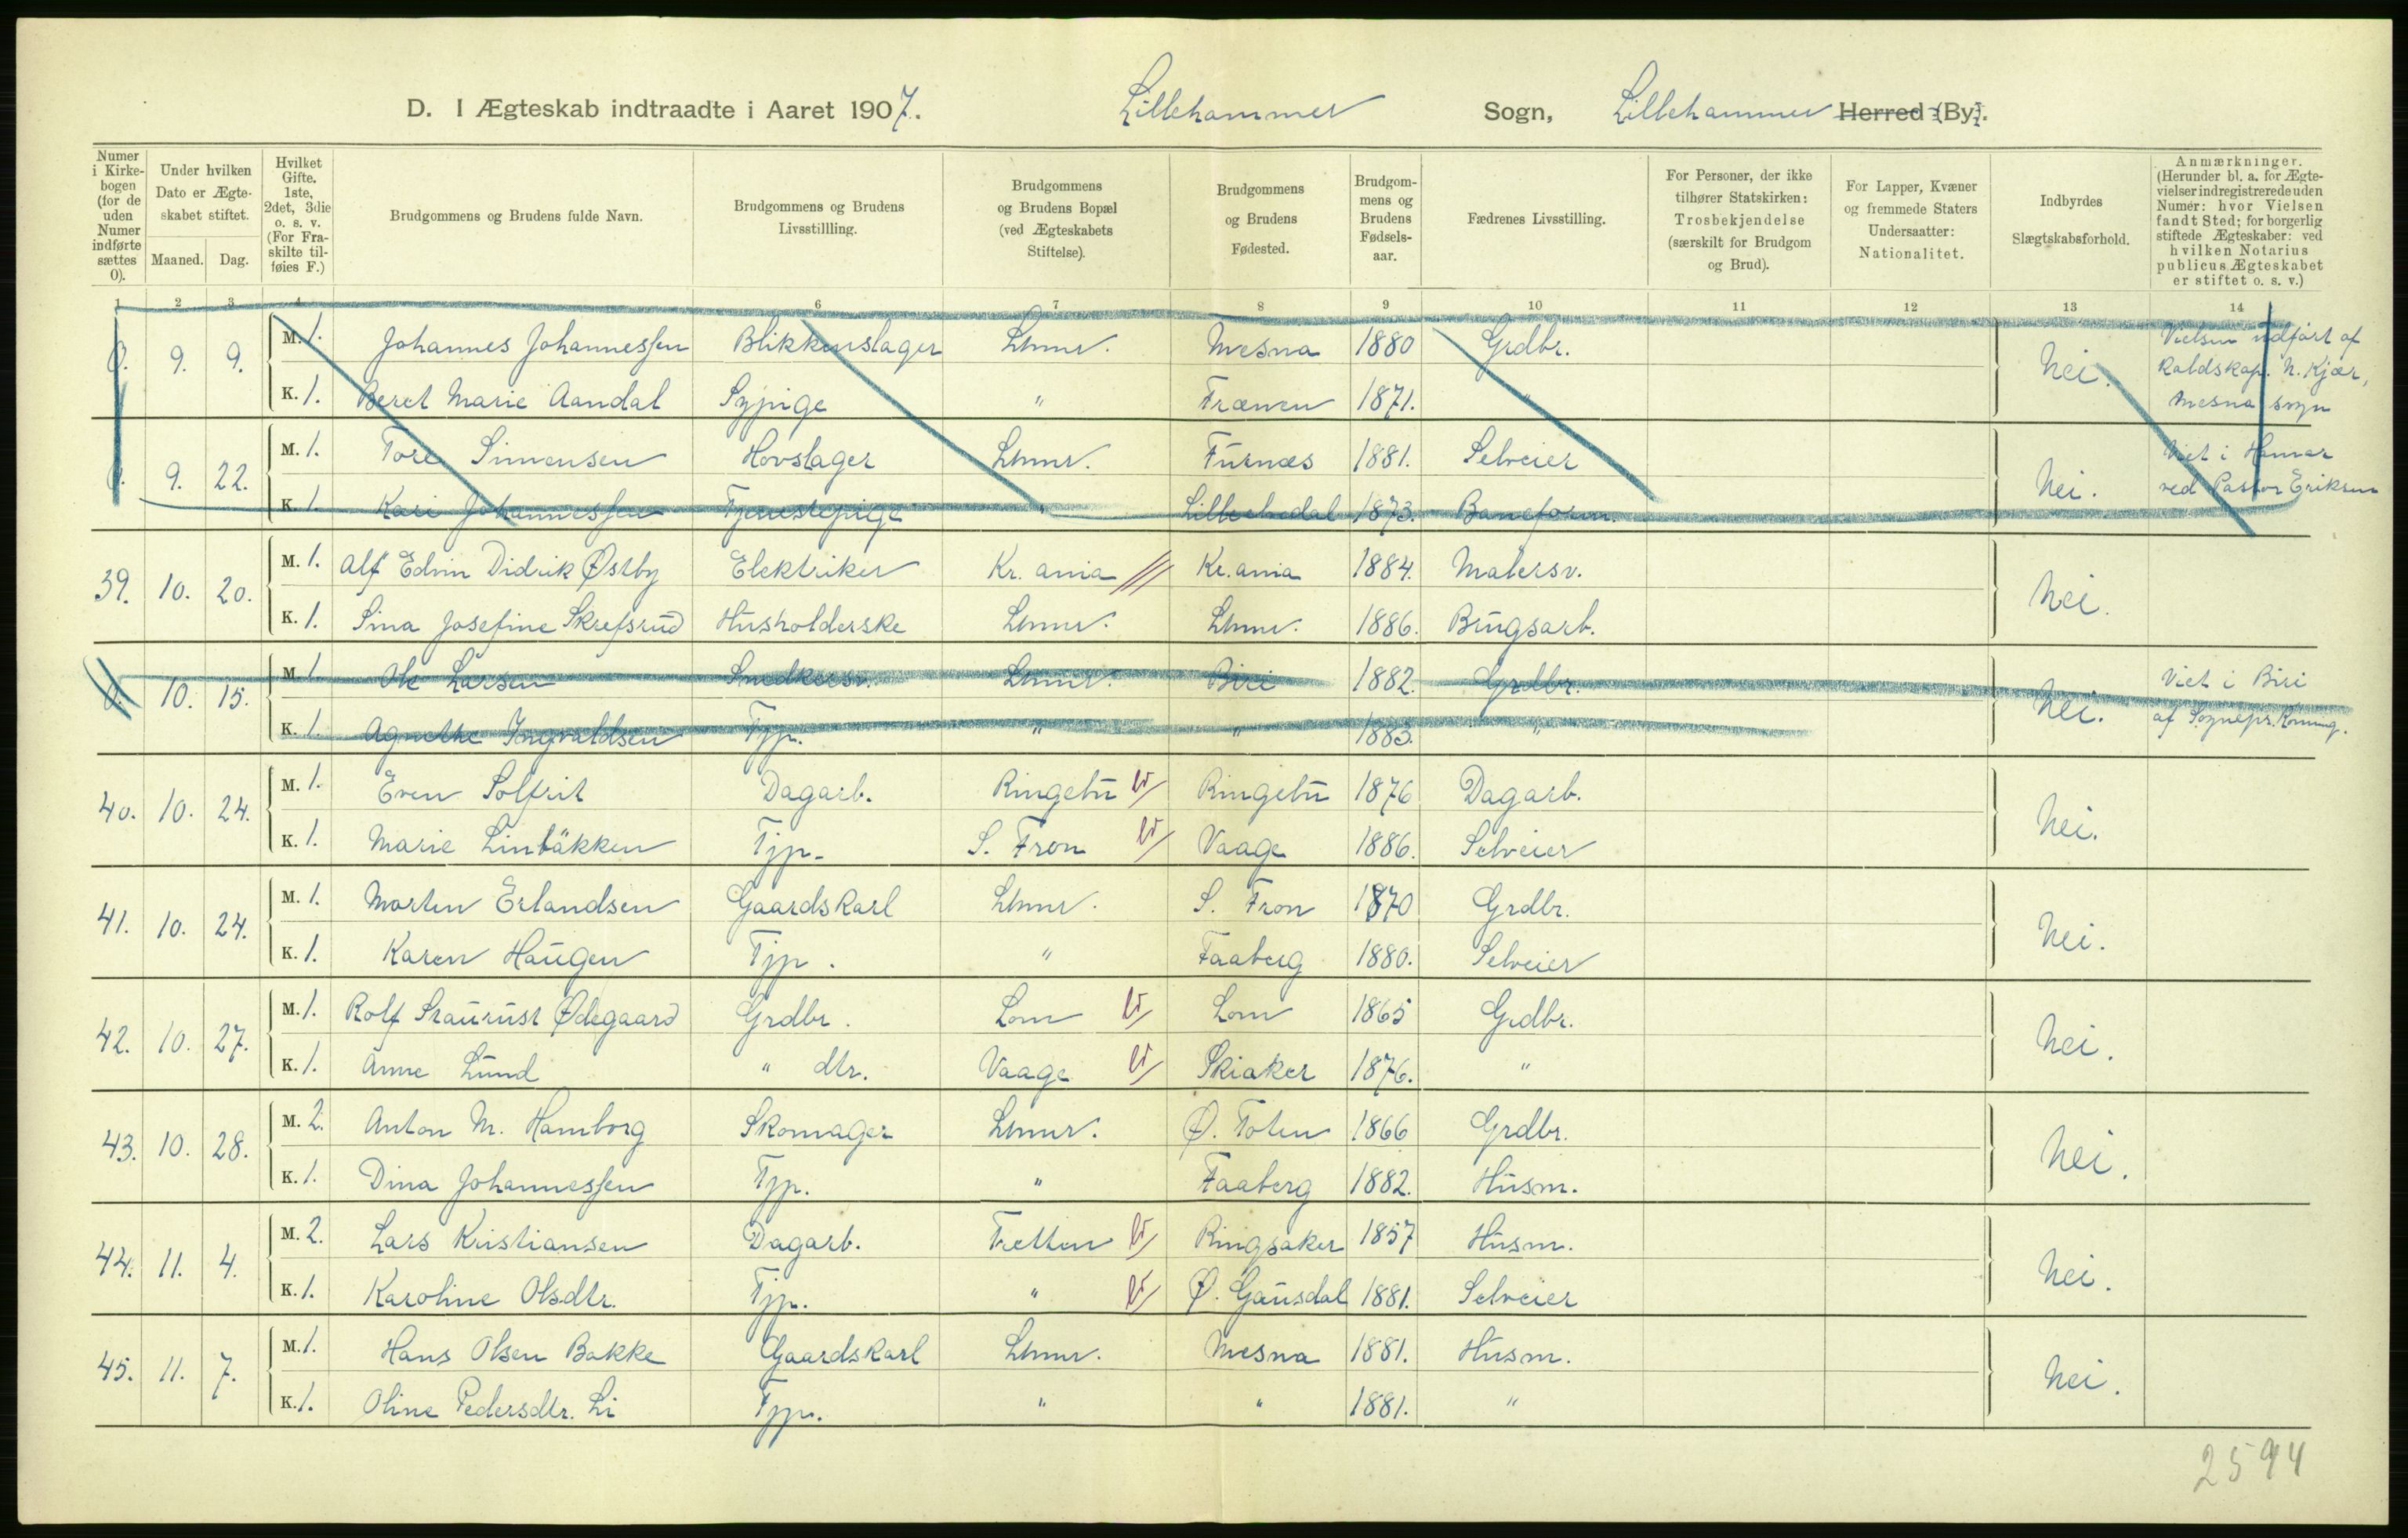 D. I Ægteskab indtraadte i Aaret 1907. Lillehammer Sogn, Lillehammer Herred (By).
Numer i Kirkebogen (for de uden Numer indførte sættes 0).
Under hvilken Dato er Ægteskabet stiftet. Maaned. Dag.
Hvilket Gifte. 1ste, 2det, 3die o. s. v. (For Fraskilte tilføies F.)
Brudgommens og Brudens fulde Navn.
Brudgommens og Brudens Livsstillling.
Brudgommens og Brudens Bopæl (ved Ægteskabets Stiftelse).
Brudgommens og Brudens Fødested.
Brudgommens og Brudens Fødselsaar.
Fædrenes Livsstilling.
For Personer, der ikke tilhører Statskirken: Trosbekjendelse (særskilt for Brudgom og Brud).
For Lapper, Kvæner og fremmede Staters Undersaatter: Nationalitet.
Indbyrdes Slægtskabsforhold.
Anmærkninger. (Herunder bl. a. for Ægtevielser indregistrerede uden Numer: hvor Vielsen fandt Sted; for borgerlig stiftede Ægteskaber: ved hvilken Notarius publicus Ægteskabet er stiftet o. s. v.)
1 2 3 4 6 7 8 9 10 11 12 13 14
0. 9. 9. M. 1. Johannes Johannessen Blikkenslager Lhmr. Mesna 1880 Grdbr. Nei. Vielsen udført af Raldskap. N. Kjær, Mesna sogn
K. 1. Beret Marie Aandal Sypige " Frænen 1871. "
0. 9. 22. M. 1. Tore Simensen Hovslager Lhmr. Furnæs 1881. Selveier Nei. Viet i Hamar ved Pastor Eriksen
K. 1. Kari Johannessen Tjenestepige " Lilleelvedal 1873. Baneform.
39. 10. 20. M. 1. Alf Edvin Didrik Østby Elektriker Kr.ania Kr.ania 1884. Malersv. Nei.
K. 1. Sina Josefine Skrefsrud Husholderske Lhmr. Lhmr. 1886. Brugsarb.
0. 10. 15. M. 1. Ole Larsen Snedkersv. Lhmr. Biri 1882. Grdbr. Nei. Viet i Biri af Sognepr. Konnng.
K. 1. Agnethe Ingvaldsen Tjp. " " 1883. "
40. 10. 24. M. 1. Even Solfrit Dagarb. Ringebu Ringebu 1876 Dagarb. Nei.
K. 1. Marie Linbäkken Tjp. S. Fron Vaage 1886. Selveier
41. 10. 24. M. 1. Morten Erlandsen Gaardskarl Lhmr. S. Fron 1870 Grdbr. Nei.
K. 1. Karen Haugen Tjp. " Faaberg 1880. Selveier
42. 10. 27. M. 1. Rolf Staurust Ødegaard Grdbr. Lom Lom 1865 Grdbr. Nei.
K. 1. Anne Lund " dtr. Vaage Skiaker 1876. "
43. 10. 28. M. 2. Anton M. Hamborg Skomager Lhmr. Ø. Toten 1866 Grdbr. Nei.
K. 1. Dina Johannessen Tjp. " Faaberg 1882. Husm.
44. 11. 4. M. 2. Lars Kristiansen Dagarb. Fretten Ringsaker 1857 Husm. Nei.
K. 1. Karoline Olsdtr. Tjp. " Ø. Gausdal 1881. Selveier
45. 11. 7. M. 1. Hans Olsen Bakke Gaardskarl Lhmr. Mesna 1881. Husm. Nei.
K. 1. Oline Pedersdtr. Li Tjp. " " 1881. "
2594